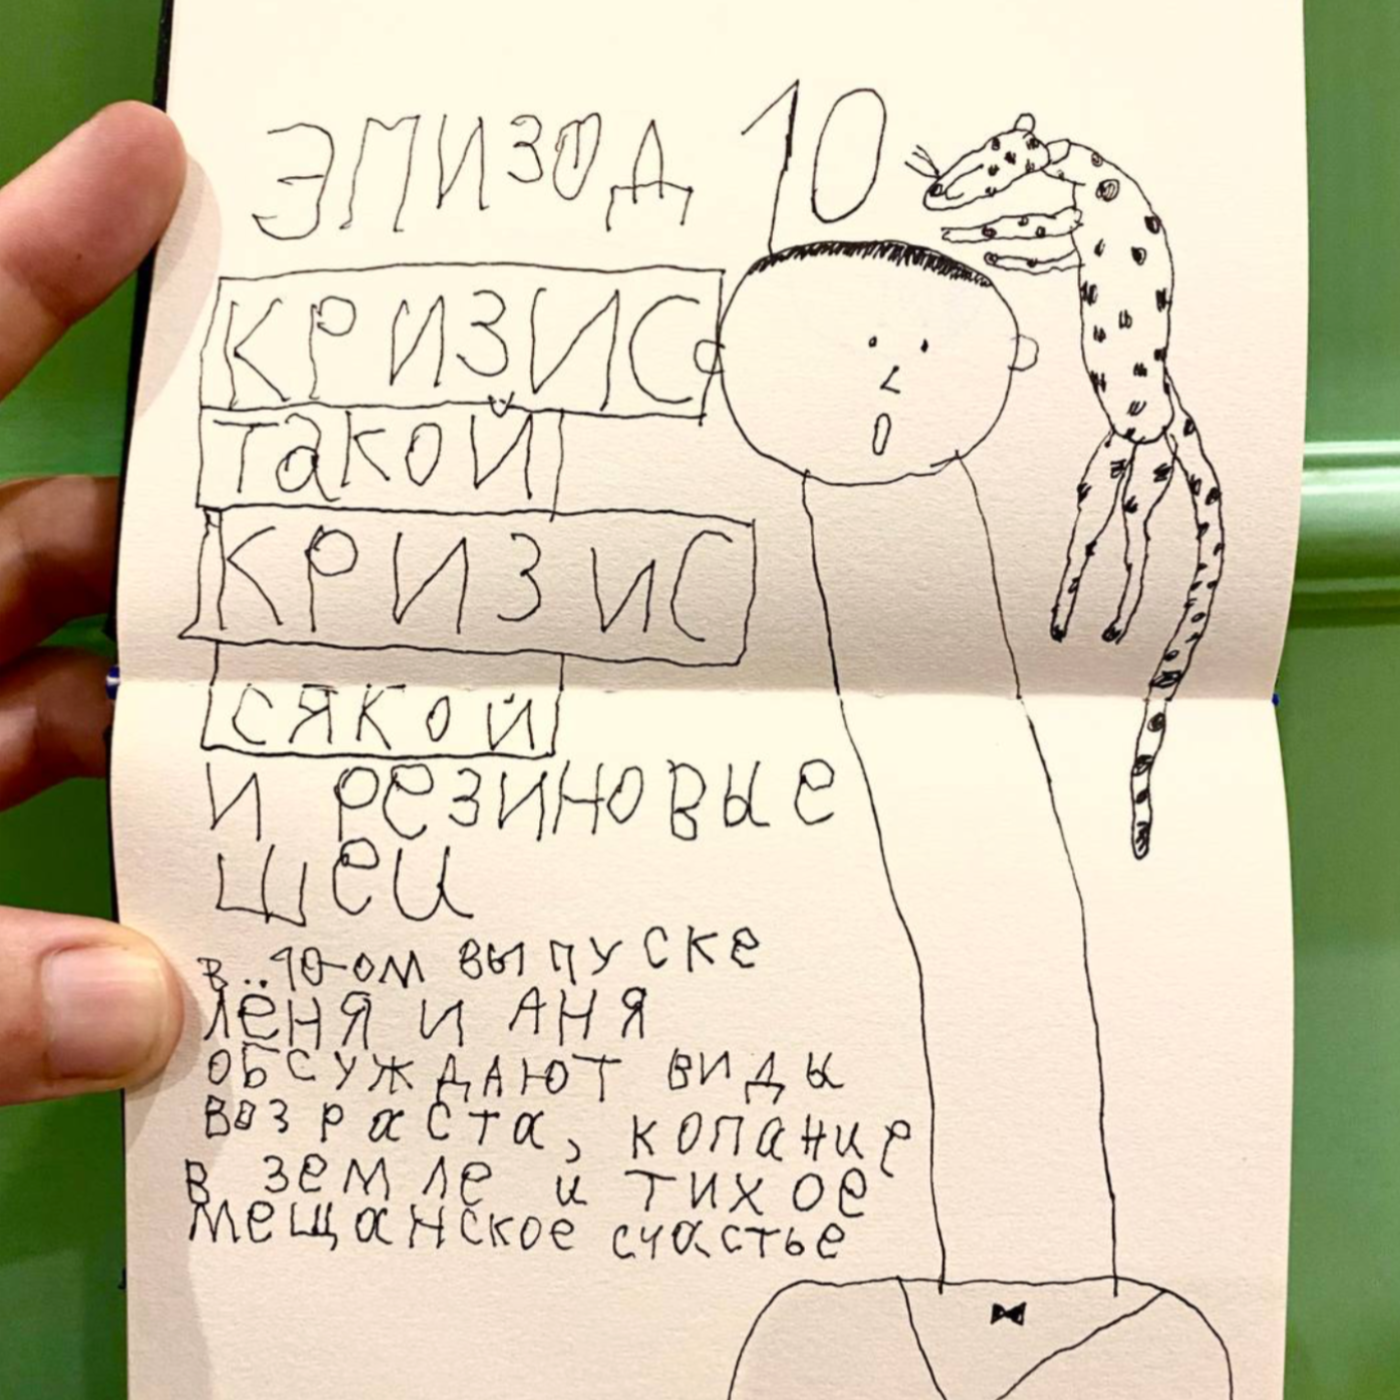 ЭПИЗОД 10
КРИЗИС
такой
КРИЗИС
сякой
и резиновые
шеи
в 10-ом выпуске
лёня и Аня
обсуждают виды
возраста, копание
в земле и тихое
мещанское счастье